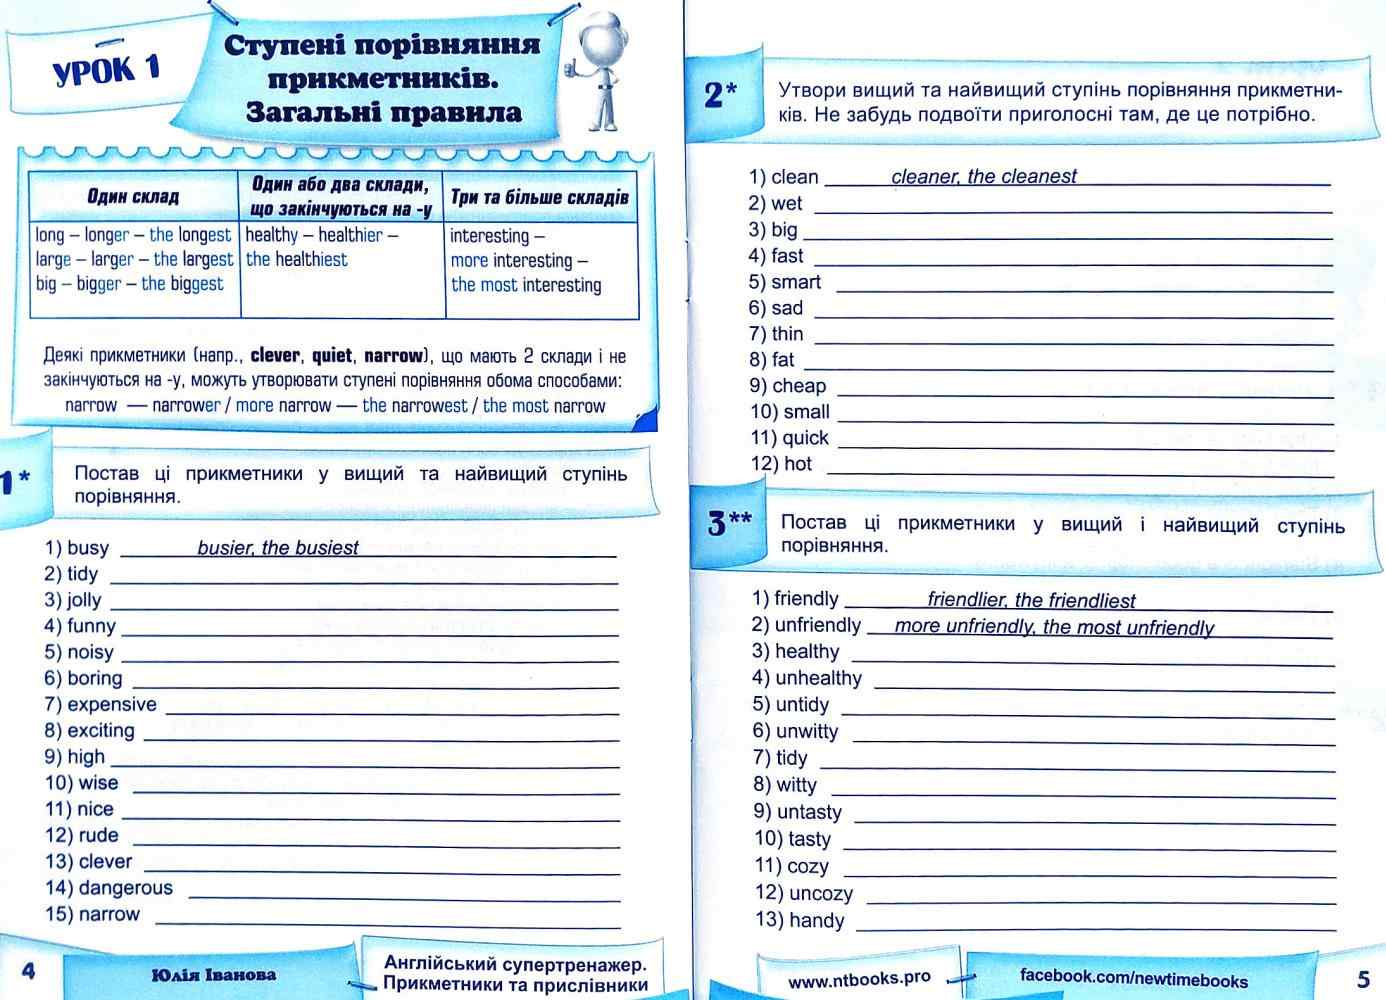 УРОК 1
Ступені порівняння
прикметників.
Загальні правила
Один склад
Один або два склади,
що закінчуються на -y
Три та більше складів
long – longer – the longest
large – larger – the largest
big – bigger – the biggest
healthy – healthier –
the healthiest
interesting –
more interesting –
the most interesting
Деякі прикметники (напр., clever, quiet, narrow), що мають 2 склади і не
закінчуються на -y, можуть утворювати ступені порівняння обома способами:
narrow — narrower / more narrow — the narrowest / the most narrow
1*
Постав ці прикметники у вищий та найвищий ступінь
порівняння.
1) busy busier, the busiest
2) tidy
3) jolly
4) funny
5) noisy
6) boring
7) expensive
8) exciting
9) high
10) wise
11) nice
12) rude
13) clever
14) dangerous
15) narrow
4
Юлія Іванова
Англійський супертренажер.
Прикметники та прислівники
2*
Утвори вищий та найвищий ступінь порівняння прикметни-
ків. Не забудь подвоїти приголосні там, де це потрібно.
1) clean cleaner, the cleanest
2) wet
3) big
4) fast
5) smart
6) sad
7) thin
8) fat
9) cheap
10) small
11) quick
12) hot
3**
Постав ці прикметники у вищий і найвищий ступінь
порівняння.
1) friendly friendlier, the friendliest
2) unfriendly more unfriendly, the most unfriendly
3) healthy
4) unhealthy
5) untidy
6) unwitty
7) tidy
8) witty
9) untasty
10) tasty
11) cozy
12) uncozy
13) handy
www.ntbooks.pro
facebook.com/newtimebooks
5